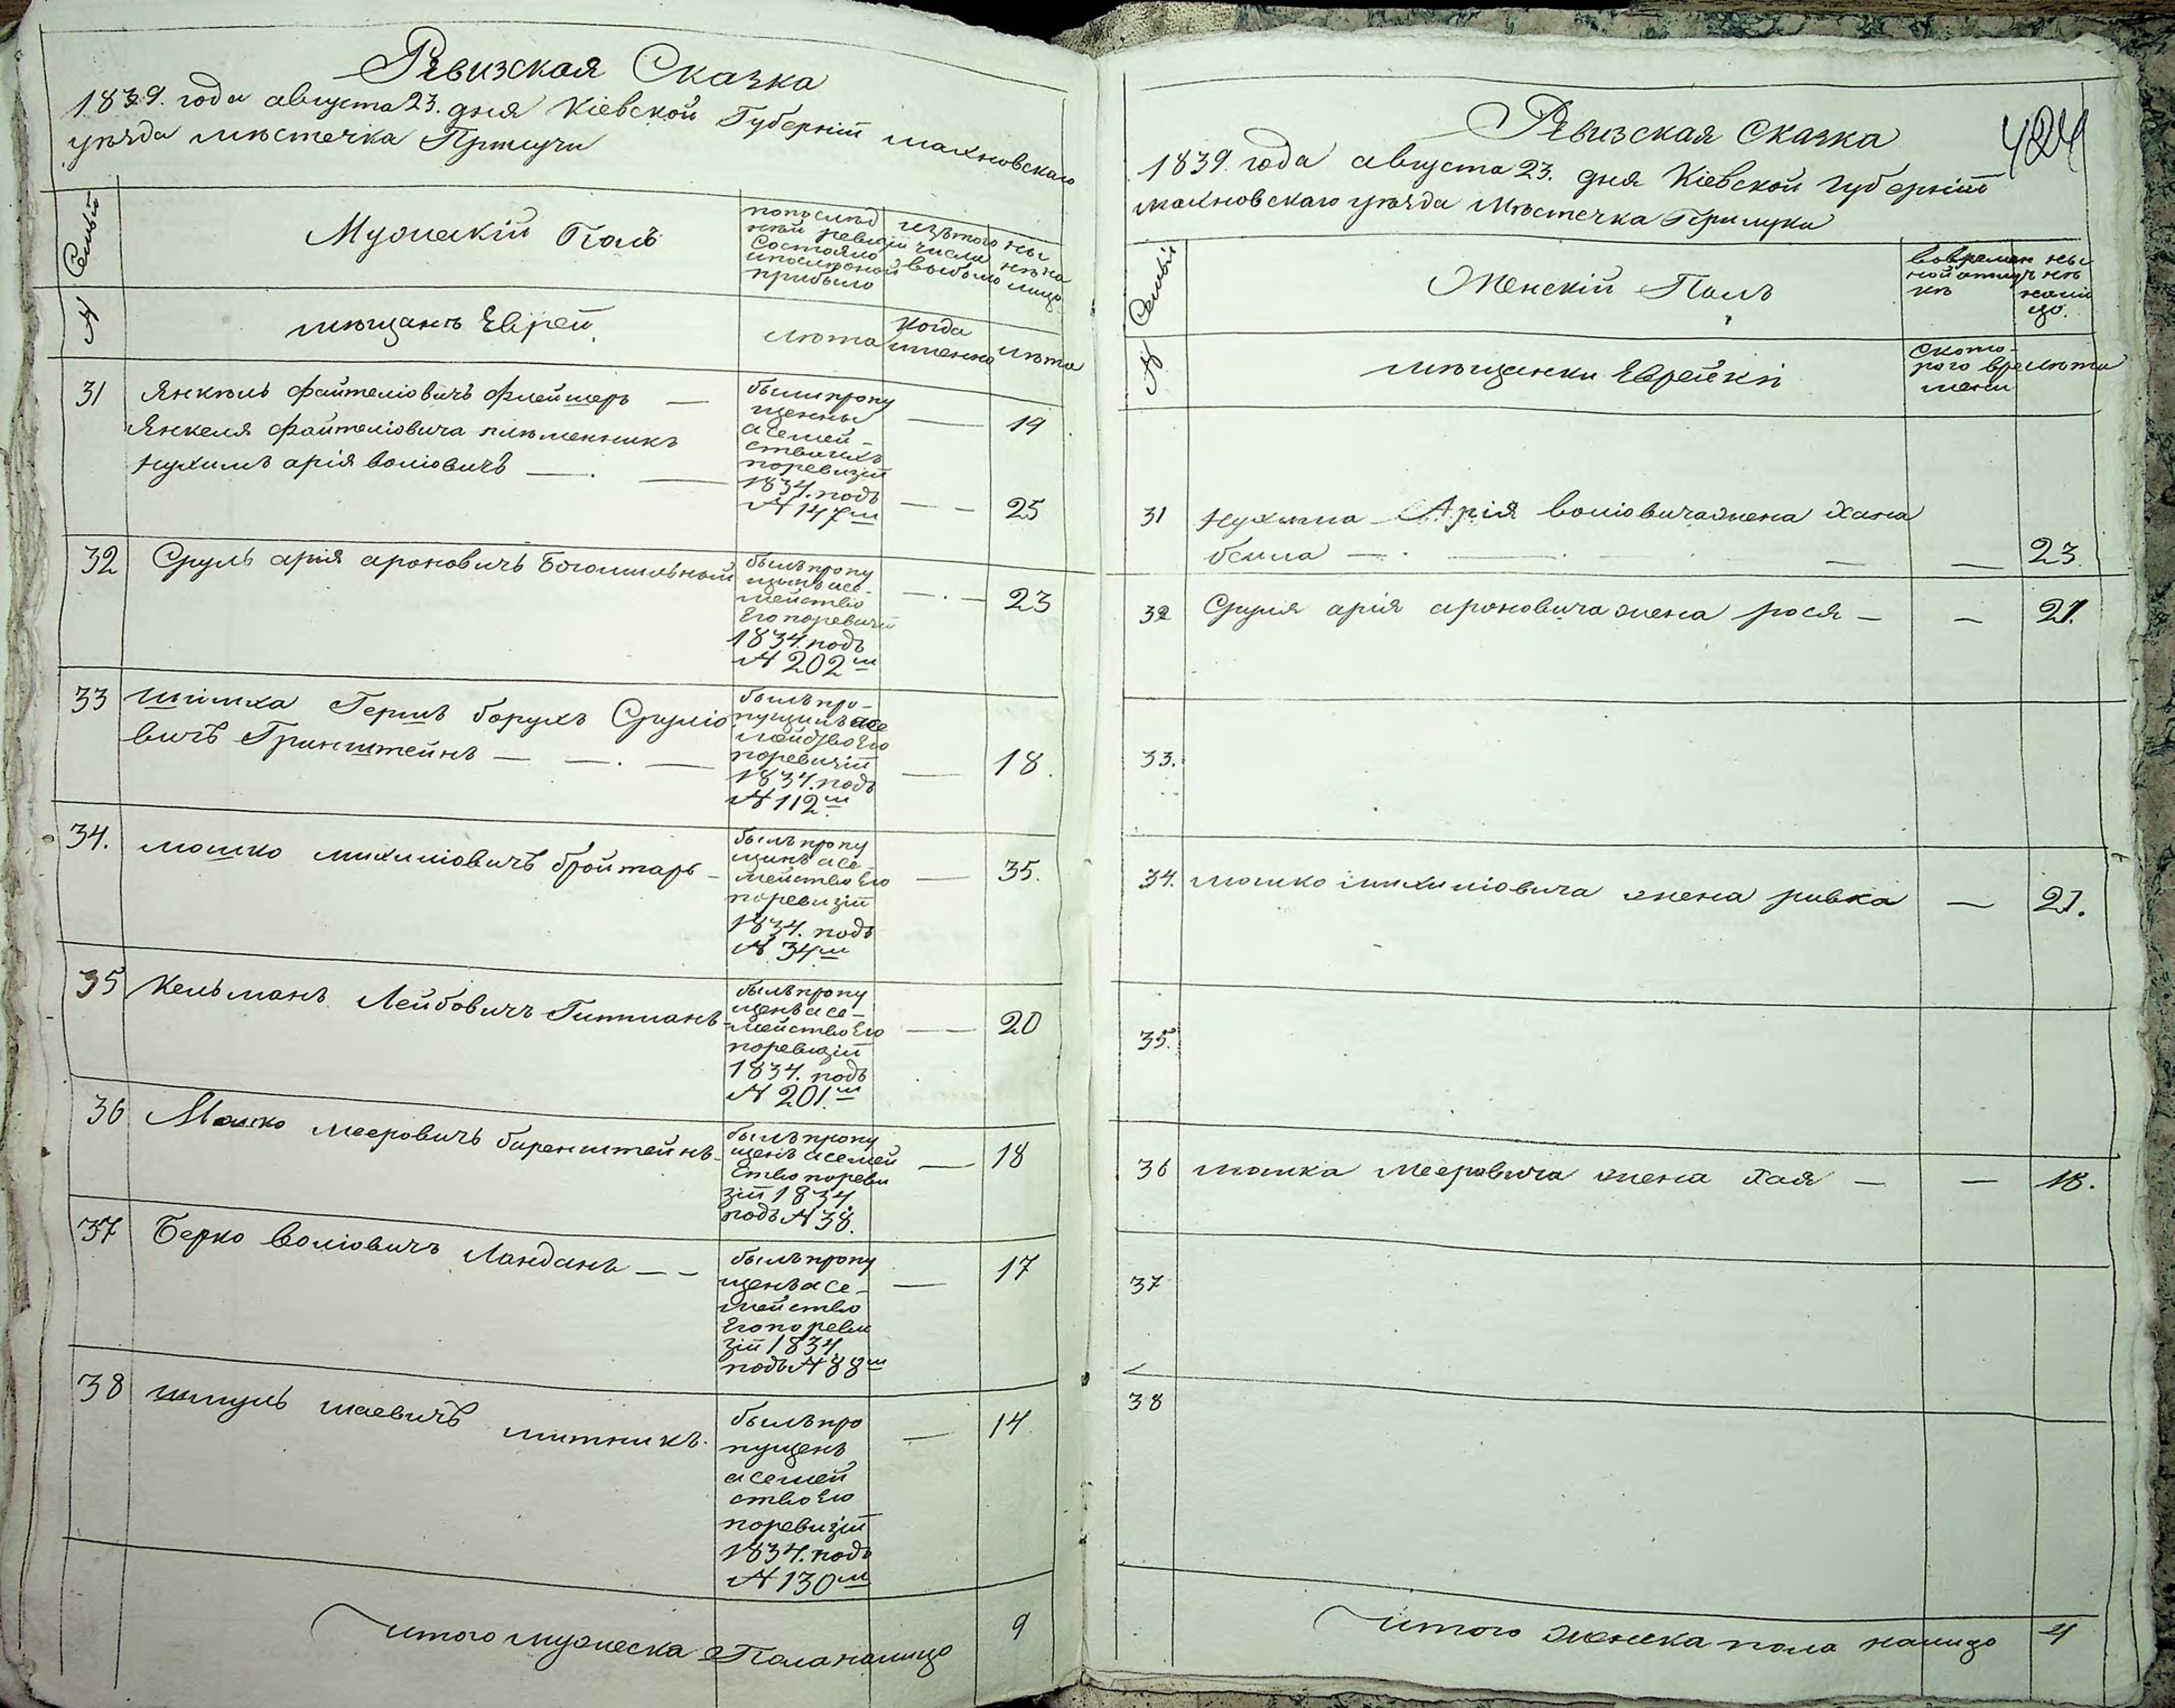 Ревизская Сказка
1839. года августа 23. дня Кіевской Губерніи махновскаго
уѣзда мѣстечка Прилуки
№ Семьи
Мужескій Полъ
попослѣд
ней ревизіи
состояло
ипослѣоной
прибыло
изътого
числа
выбыло
ны
нѣ на
лицо
мѣщанъ Еврей
лѣта
когда
именно
лѣта
31
Янкель файтеліовичъ флейшеръ —
былипропу
щенны
асемей-
ствиихъ
поревизіи
1834. подъ
№ 147м
19
Янкеля файтеліовича племенникъ
Нухимъ арія воліовичъ —
25
32
Сруль арія ароновичъ Богомильный
былъпропу
щинъасе-
мейство
Егопоревизіи
1834. подъ
№ 202м
23
33
шімха Гершъ борухъ Сруліо
вичъ Гринштейнъ —
былъпро-
пущинъасе
мействоЕго
поревизіи
1834. подъ
№ 112м
18.
34.
мошко михиліовичъ бройтаръ -
былъпропу
щинъасе-
мействоЕго
поревизіи
1834. подъ
№ 34м
35.
35
Кельманъ Лейбовичъ Гитманъ-
былъпропу
щенъасе-
мействоЕго
поревизіи
1834. подъ
№ 201.м
20
36
Мошко мееровичъ биренштейнъ-
былъпропу
щенъ асемей
ствопореви
зіи 1834
подъ № 38.
18
37
Берко воліовичъ Ланданъ — -
былъпропу
щенъасе-
мейство
Егопореви
зіи 1834
подъ № 88м
17
38
шмуль шаевичъ митникъ.
былъпро
пущенъ
асемей
ствоЕго
поревизіи
1834. подъ
№ 130м
14
итого мужеска Пола налицо
9
424
Ревизская Сказка
1839. года августа 23. дня Кіевской Губерніи
махновскаго уѣзда Мѣстечка Прилуки
№ Семьи
Женскій Полъ
вовремен
нойотлуч
кѣ
ны
нѣ
нали
цо.
мѣщанки Еврейки
Ското-
рого вре
мени
лѣта
31
Нухима Арія воліовича жена Хана
бейла —
23
32
Сруля арія ароновича жена рося —
21.
33.
34.
мошко михиліовича жена ривка
21.
35.
36
мошка Мееровича жена Хая —
18.
37
38
итого женска пола налицо
4